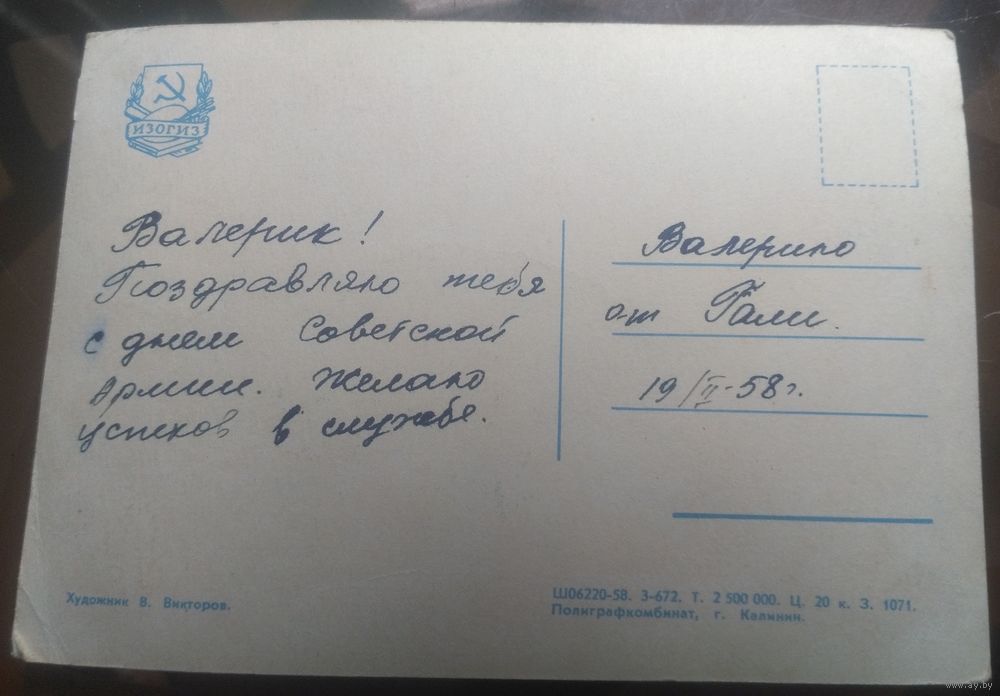 ИЗОГИЗ
Валерик!
Поздравляю тебя
с днем Советской
Армии. Желаю
успехов в службе.
Валерию
от Гали.
19/II-58г.
Художник В. Викторов.
Ш06220-58. З-672. Т. 2 500 000. Ц. 20 к. З. 1071.
Полиграфкомбинат, г. Калинин.
www.ay.by